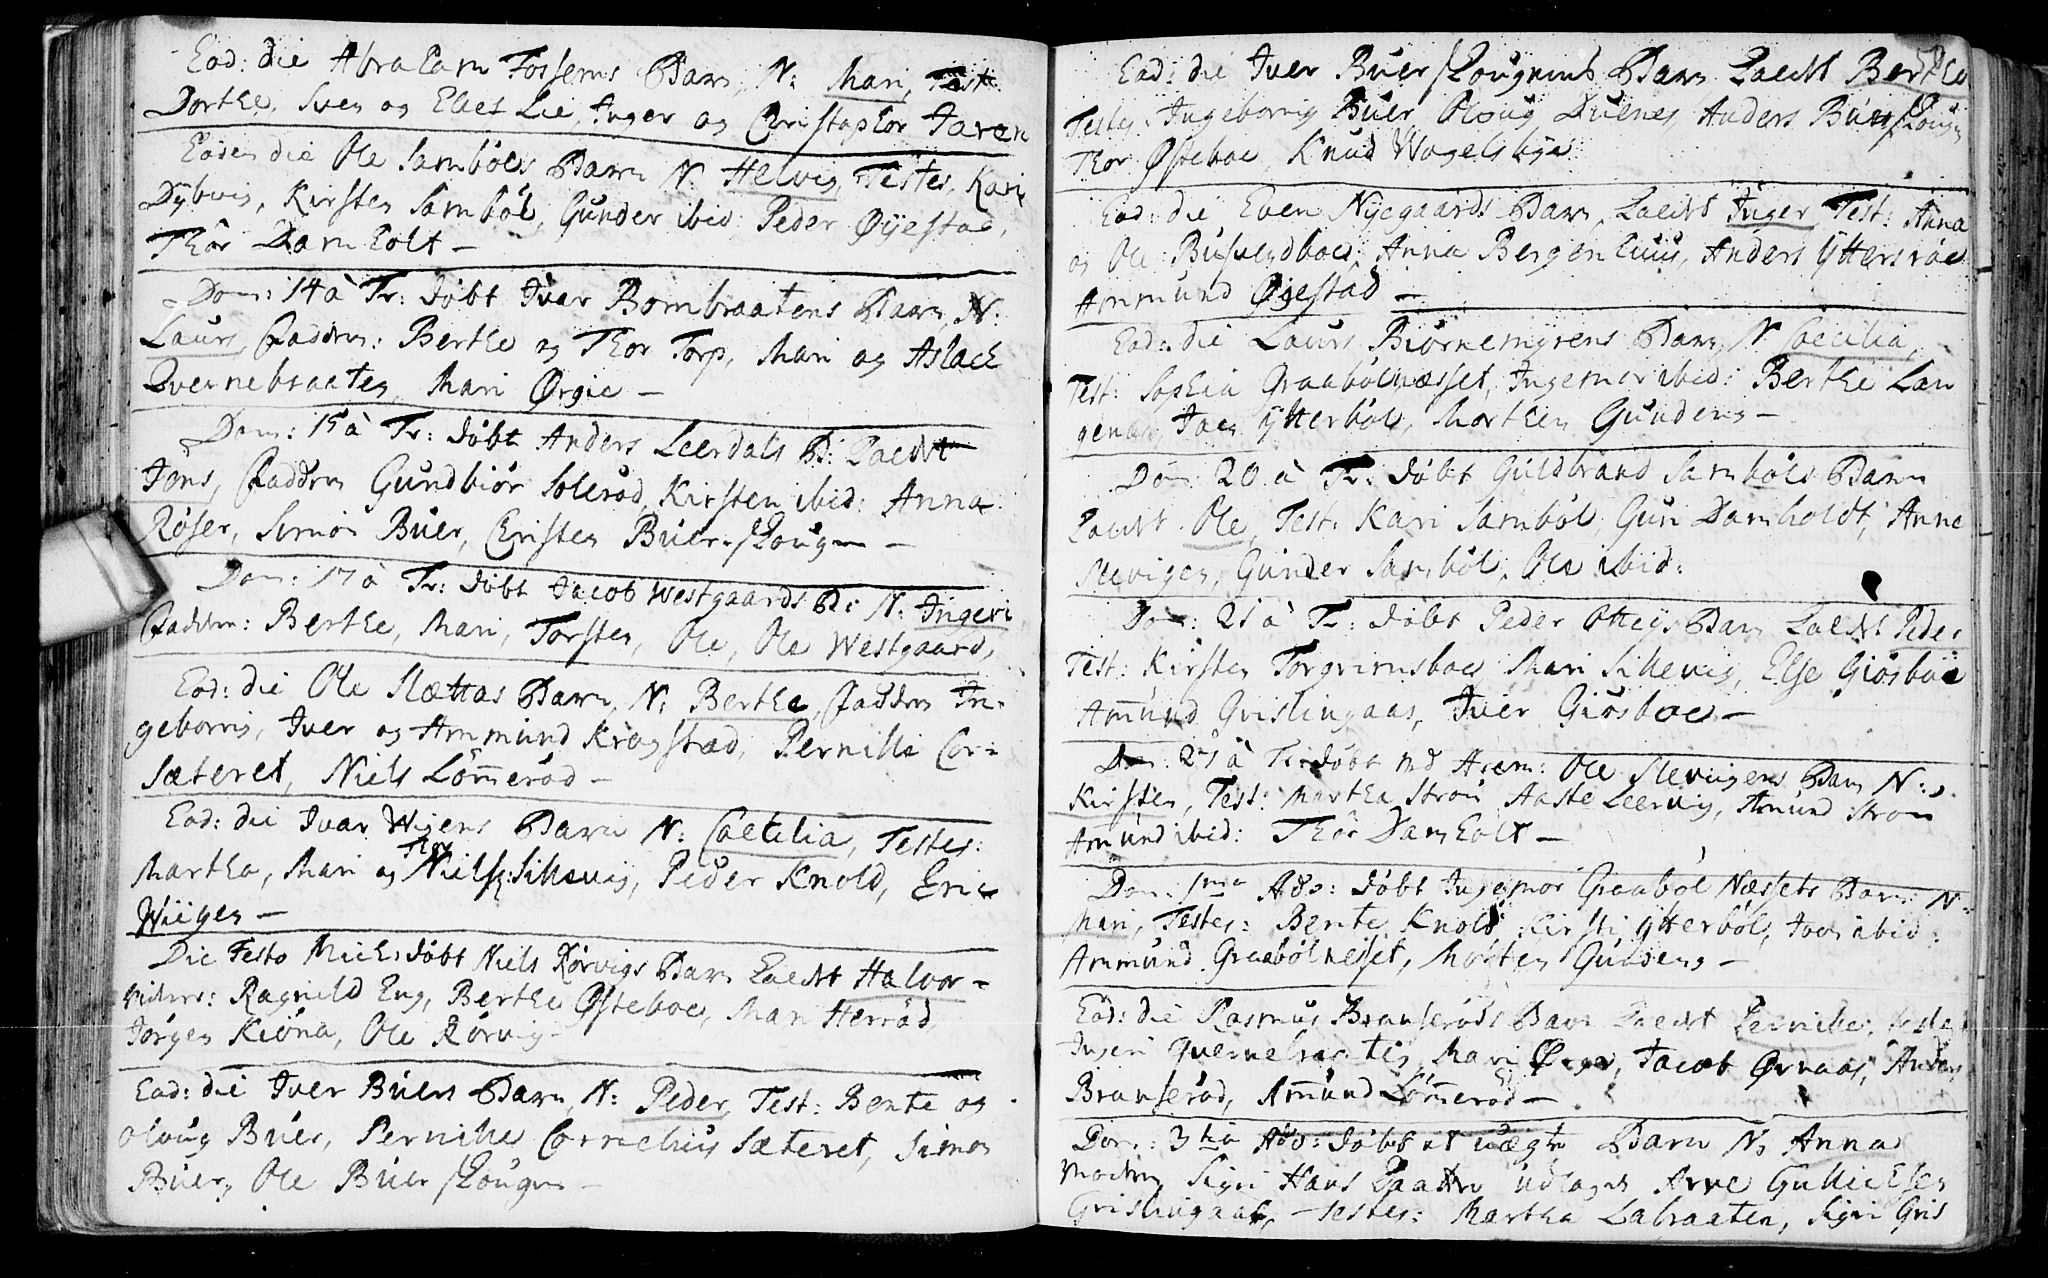 Eod: die Abraham Fossems Barn, N: Mari, Test
Dorthe, Sven og Elies Lie, Inger og Christopher Jaren
Eodem die Ole Samböls Barn N: Helvig, Testes, Kari
Dybvig, Kirsten Samböl, Gunder ibid: Peder Øyestad,
Thor Damholt –
Dom: 14 à Tr: döbt Iver Bombraatens Barn, N:
Laurs, Faddere: Berthe og Thor Torp, Mari og Aslach
Qvernebraaten, Mari Ørgie –
Dom: 15 à Tr: döbt Anders Leerdals B: kaldt
Jens, Faddere Gundbiör Solerød, Kirsten ibid: Anna
Röser, Simon Buer, Christen Buer-skougen –
Dom: 17 à Tr: döbt Jacob Westgaards B: N: Ingeri
Faddere: Berthe, Mari, Torsten, Ole, Ole Westgaard,
Eod: die Ole Slættas Barn, N: Berthe, Faddere In-
geborrig, Iver og Ammund Kragstad, Pernille Cor-
sæteret, Niels Löm̅eröd –
Eod: die Ivar Wigens Barn N: Caecilia, Testes:
Martha, Mari og Thor Niels: Sillevig, Peder Knold, Eric
Wiigen –
Die Festo Mich: döbt Niels Rörvigs Barn kaldt Halvor –
Vidner: Ragnild Eng, Berthe Østeboe, Mari Herröd
Jörgen Kiöna, Ole Rörvig
Eod: die Iver Buers Barn, N: Peder, Test: Bente og
Oloug Buer, Pernille Cornelius Sæteret, Simon
Buer, Ole Buer skougen –
Eod: die Iver Buer skougens Barn kaldt Berthe
Testes: Ingeborrig Buer, Oloug Duenes Anders Buerskougen
Thor Østeboe, Knud Wogelsbye
Eod: die Even Nyegaards Barn, kaldt Inger, Test: Anna
og Ole Busundboe, Anna Bergenhuus, Anders Ytterröe
Ammund Øyestad –
Eod: die Laurs Biörnemyrens Barn, N: Caecilia,
Test: Sophia Graabölnæsset, Ingemor ibid: Berthe Lan
genes, Joen Ytterböl, Morthen Gundeng –
Dom: 20 à Tr: döbt Guldbrand Samböls Barn
kaldt Ole, Test: Kari Samböl, Guri Damholdt, Anne
Slevigen, Gunder Samböl, Ole ibid:
Dom: 21 à Tr: döbt Peder Otteys Barn kaldt Peder
Test: Kirsten Torgrimsboe, Mari Sillevig, Else Giösboe
Am̅und Grislingaas, Iver Giösboe –
Dom: 27 à Tr: döbt Ole Slevigens Barn N:
Kirsten, Test: Martha Strön, Aaste Leervig, Amund Strön
Am̅und ibid: Thor Damholt –
Dom: 1ma Adv: döbt Ingemor Graaböl Næssets Barn N:
Mari, Testes: Bente Knold, Kirsti Ytterböl, Joen ibid:
Ammund Graabölnesset, Morten Gundeng –
Eod: die Rasmus Branseröds Barn kaldt Pernille, Testes
Ingeri Quernebraaten, Mari Ørgie, Jacob Ørnaas, Anders
Branseröd, Am̅und Löm̅eröd –
Dom: 3tia Adv: döbt et uægte Barn N: Anna
Moderen Sigri Hans Udlagde Arne Gullichsen
Grislingaas, Testes: Martha Labraaten, Sigri Gris